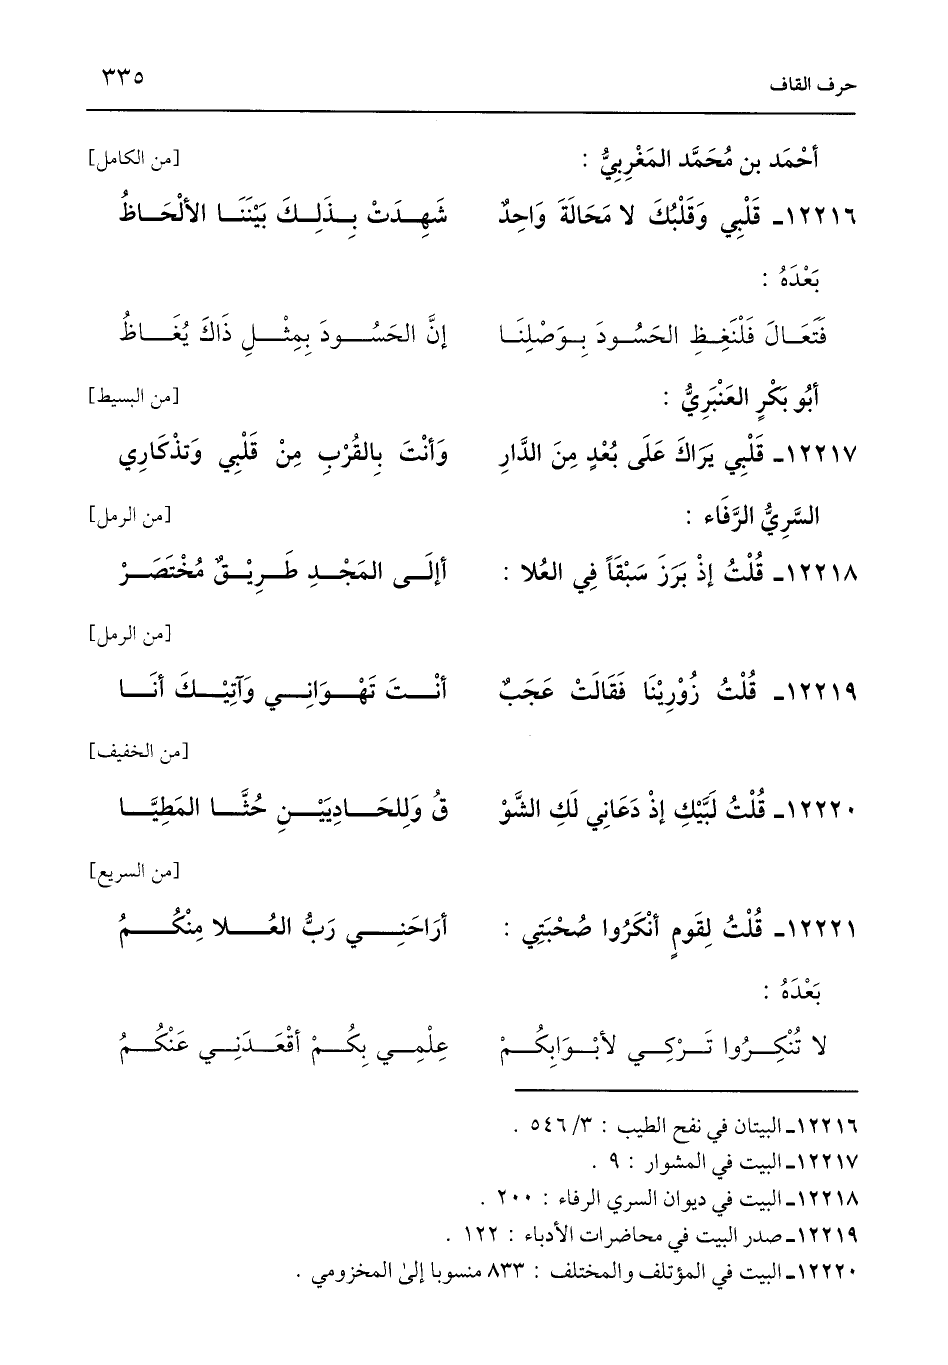 حرف القاف ٣٣٥
أحْمَد بن مُحَمَّد المَغْرِبِيُّ : [من الكامل]
١٢٢١٦ـ قَلْبِي وَقَلْبُكَ لا مَحَالَةَ وَاحِدٌ شَهِدَتْ بِذَلِكَ بَيْنَنَا الألْحَاظُ
بَعْدَهُ :
فَتَعَالَ فَلْنَغِظِ الحَسُودَ بِوَصْلِنَا إنَّ الحَسُودَ بِمِثْلِ ذَاكَ يُغَاظُ
أبُو بَكْرٍ العَنْبَرِيُّ : [من البسيط]
١٢٢١٧ـ قَلْبِي يَرَاكَ عَلَى بُعْدٍ مِنَ الدَّارِ وَأنْتَ بِالقُرْبِ مِنْ قَلْبِي وَتذْكَارِي
السَّرِيُّ الرَّفَاء : [من الرمل]
١٢٢١٨ـ قُلْتُ إذْ بَرَزَ سَبْقَاً فِي العُلا : أإلَى المَجْدِ طَرِيْقٌ مُخْتَصَرْ
[من الرمل]
١٢٢١٩ـ قُلْتُ زُوْرِيْنَا فَقَالَتْ عَجَبٌ أنْتَ تَهْوَانِي وَآتِيْكَ أنَا
[من الخفيف]
١٢٢٢٠ـ قُلْتُ لَبَّيْكِ إذْ دَعَانِي لَكِ الشَّوْ قُ وَلِلحَادِيَيْنِ حُثَّا المَطِيَّا
[من السريع]
١٢٢٢١ـ قُلْتُ لِقَومٍ أنْكَرُوا صُحْبَتِي : أرَاحَنِي رَبُّ العُلا مِنْكُمُ
بَعْدَهُ :
لا تُنْكِرُوا تَرْكِي لأبْوَابِكُمْ عِلْمِي بِكُمْ أقْعَدَنِي عَنْكُمُ
١٢٢١٦ـ البيتان في نفح الطيب : ٣/ ٥٤٦ .
١٢٢١٧ـ البيت في المشوار : ٩ .
١٢٢١٨ـ البيت في ديوان السري الرفاء : ٢٠٠ .
١٢٢١٩ـ صدر البيت في محاضرات الأدباء : ١٢٢ .
١٢٢٢٠ـ البيت في المؤتلف والمختلف : ٨٣٣ منسوبا إلىٰ المخزومي .